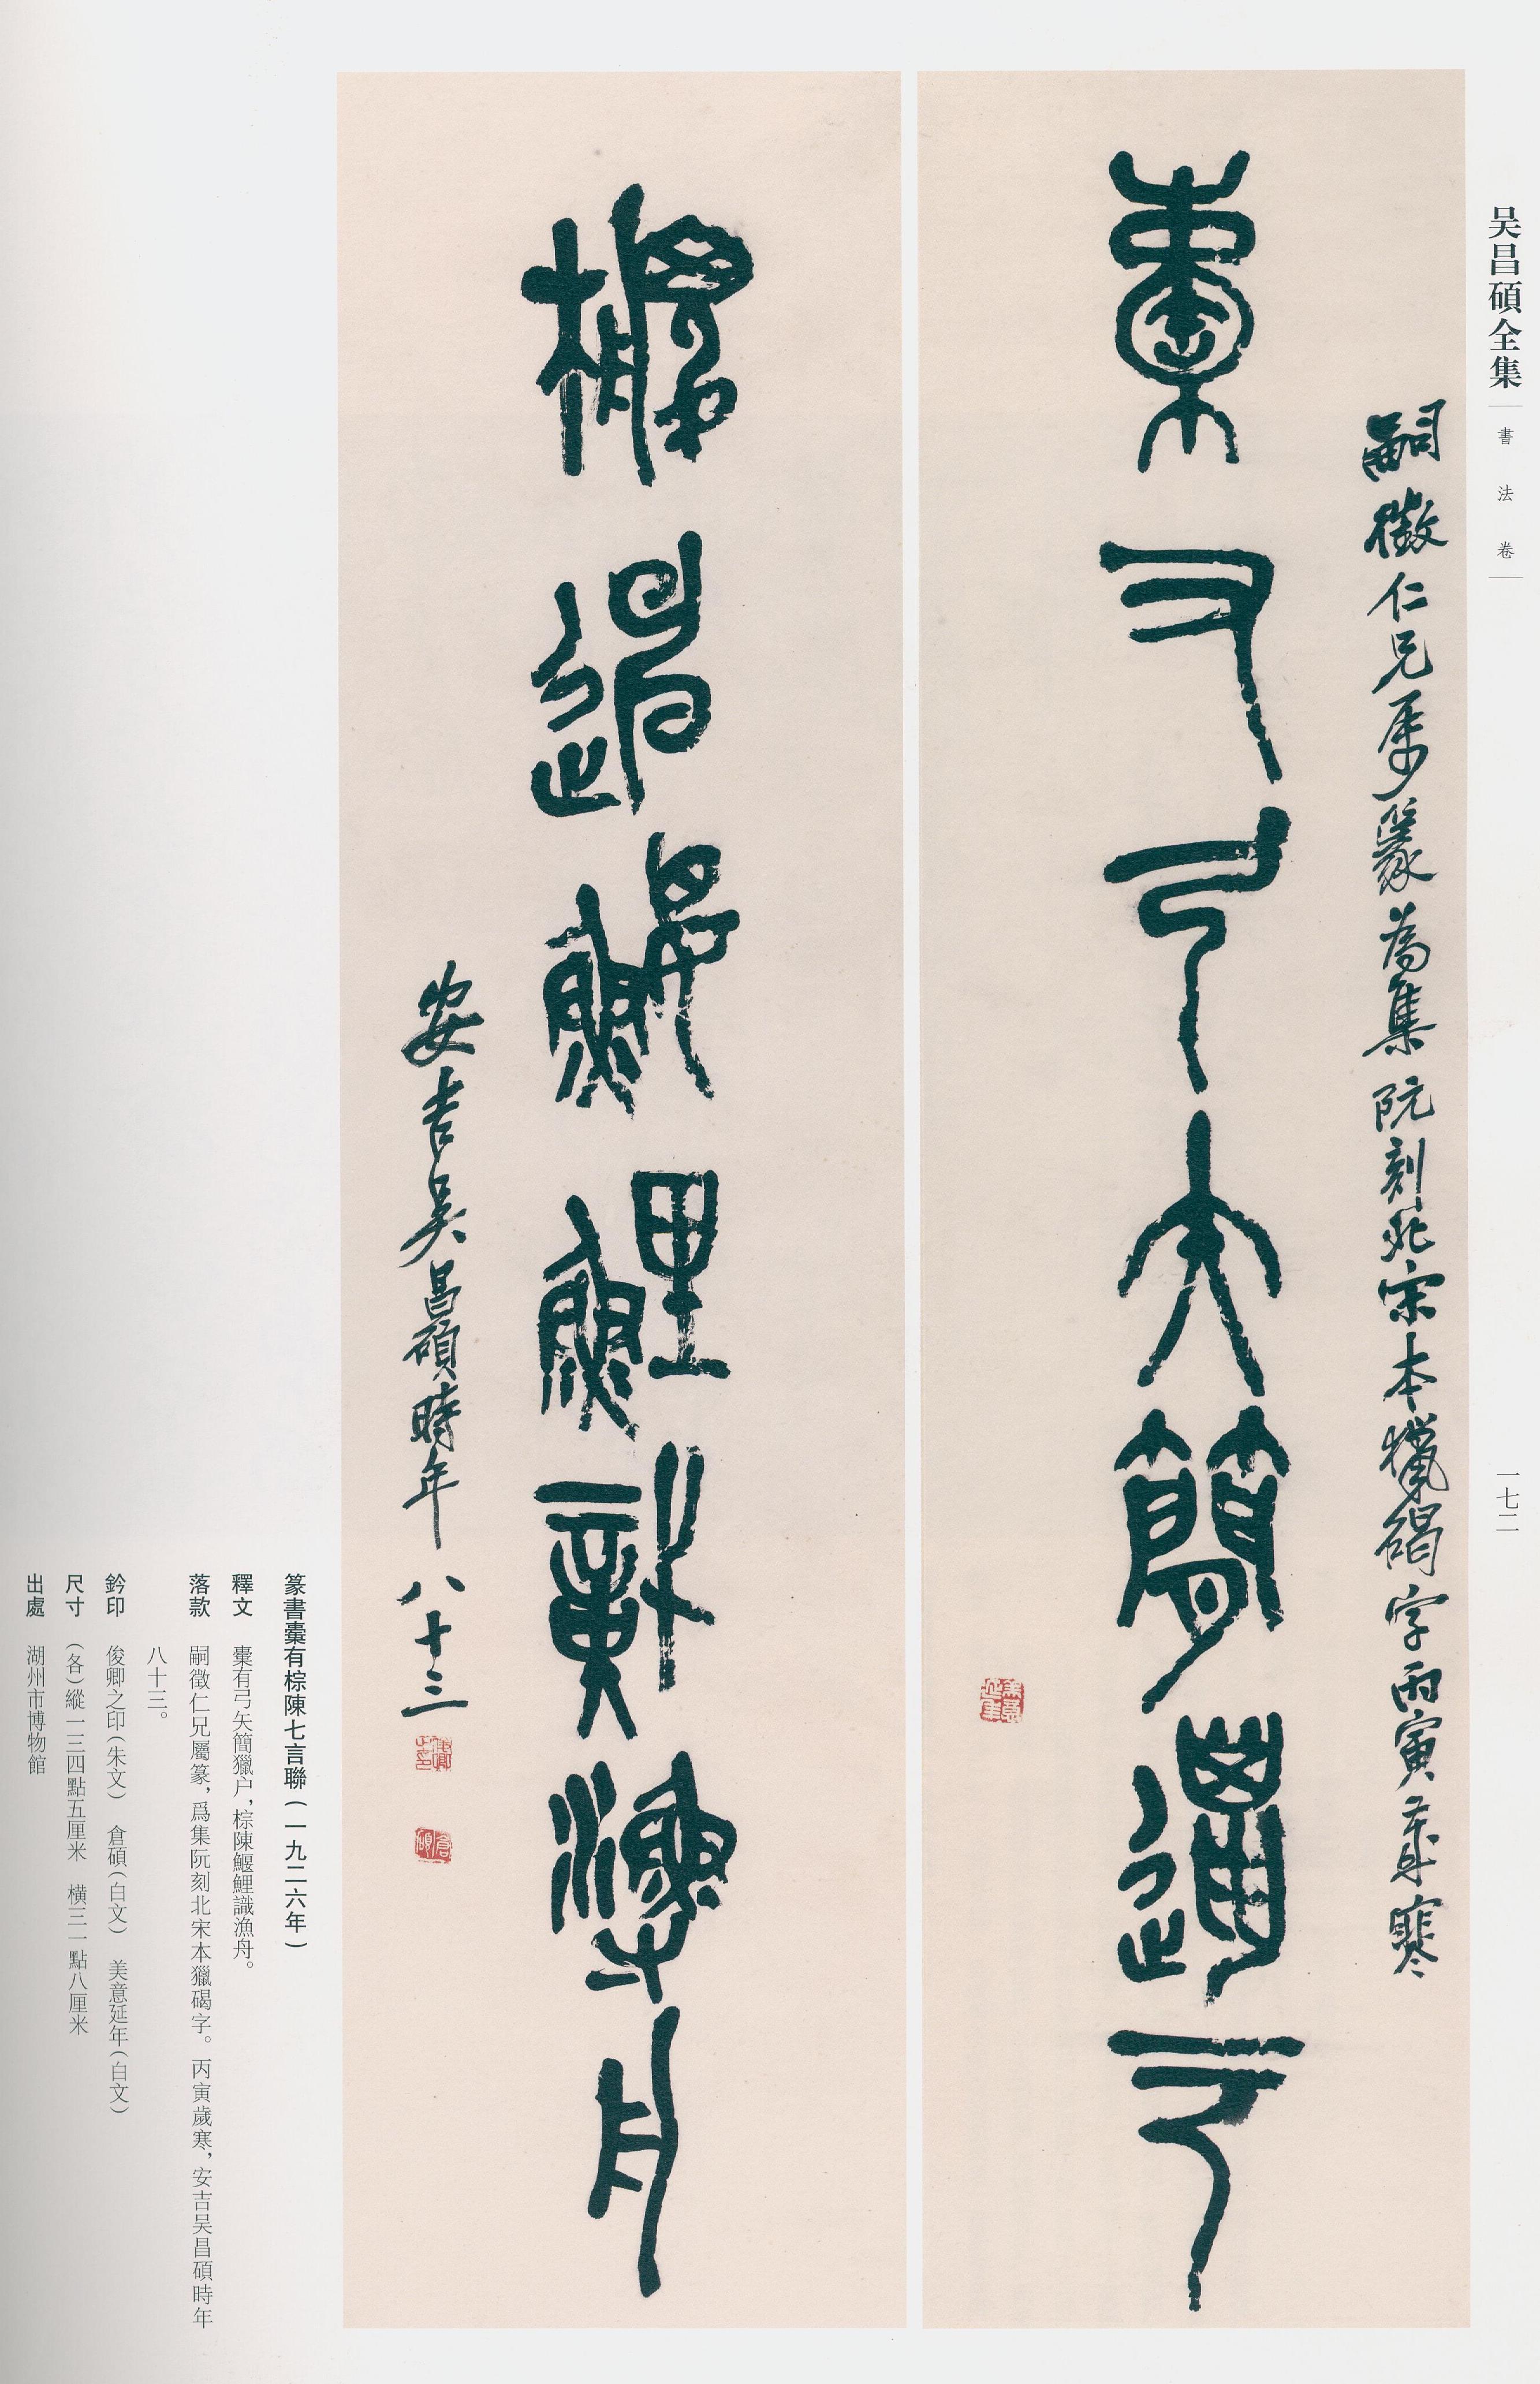 吴昌碩全集
書法卷
一七二
嗣徵仁兄屬篆為集阮刻北宋本獵碣字丙寅歲寒
櫜有弓矢簡獵户
棕陳鰋鯉識漁舟
安吉吴昌碩時年八十三
美意延年
俊卿之印
倉碩
篆書櫜有棕陳七言聯(一九二六年)
釋文 櫜有弓矢簡獵户,棕陳鰋鯉識漁舟。
落款 嗣徵仁兄屬篆,爲集阮刻北宋本獵碣字。丙寅歲寒,安吉吴昌碩時年
八十三。
鈐印 俊卿之印(朱文) 倉碩(白文) 美意延年(白文)
尺寸 (各)縱一三四點五厘米 橫三一點八厘米
出處 湖州市博物館